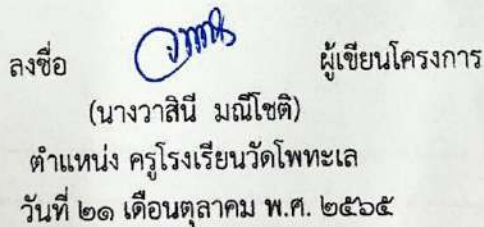 ลงชื่อ ผู้เขียนโครงการ
(นางวาสินี มณีโชติ)
ตำแหน่ง ครูโรงเรียนวัดโพทะเล
วันที่ ๒๑ เดือนตุลาคม พ.ศ. ๒๕๖๕